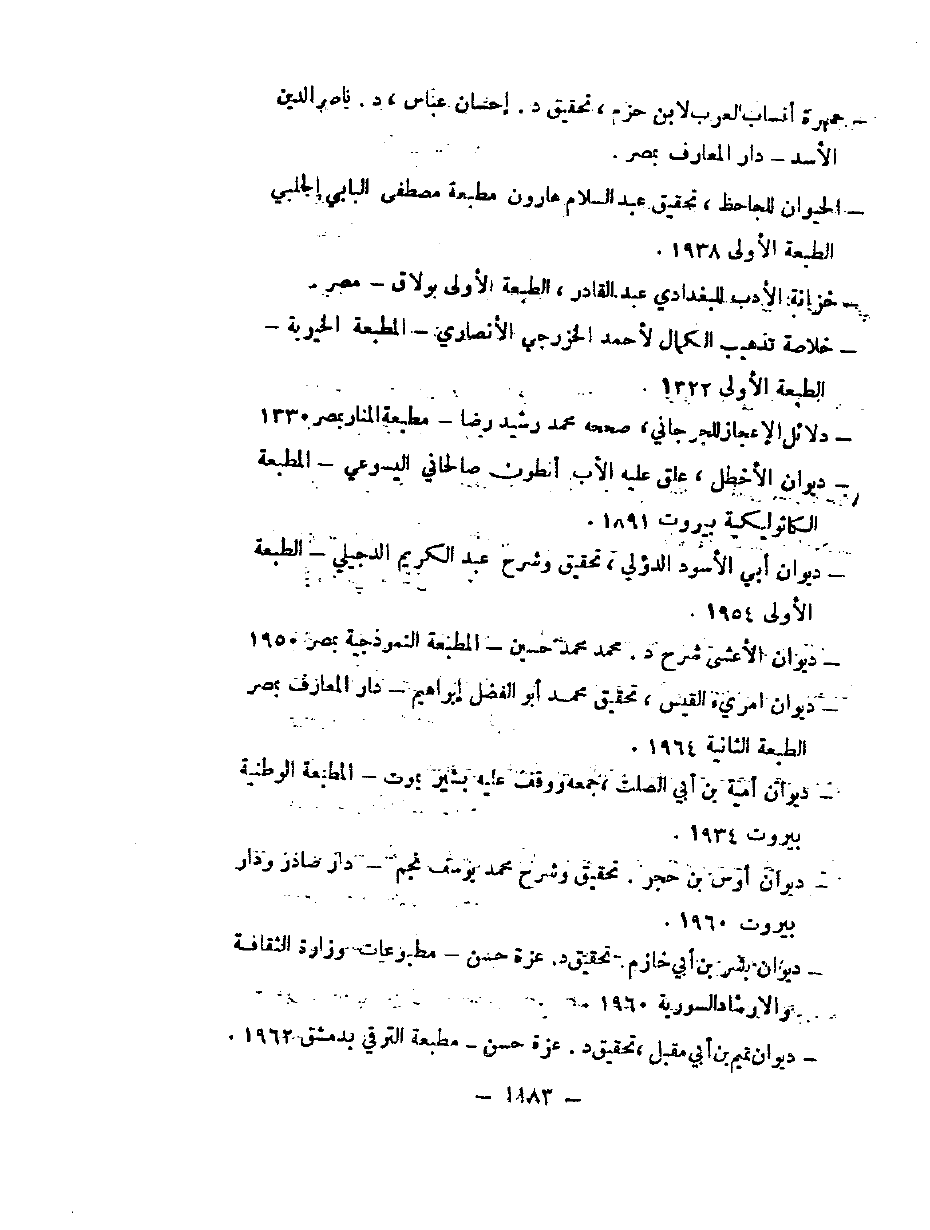 – جمهرة أنساب العرب لابن حزم ، تحقيق د . إحسان عباس ، د . ناصر الدين
الأسد – دار المعارف بمصر .
– الحيوان للجاحظ ، تحقيق عبد السلام هارون مطبعة مصطفى البابي الحلبي
الطبعة الأولى ١٩٣٨ .
– خزانة الأدب للبغدادي عبد القادر ، الطبعة الأولى بولاق – مصر .
– خلاصة تذهيب الكمال لأحمد الخزرجي الأنصاري – المطبعة الخيرية –
الطبعة الأولى ١٣٢٢ .
– دلائل الإعجاز للجرجاني ، صححه محمد رشيد رضا – مطبعة المنار بمصر ١٣٣٠
– ديوان الأخطل ، علق عليه الأب أنطون صالحاني اليسوعي – المطبعة
الكاثوليكية بيروت ١٨٩١ .
– ديوان أبي الأسود الدؤلي ، تحقيق وشرح عبد الكريم الدجيلي – الطبعة
الأولى ١٩٥٤ .
– ديوان الأعشى شرح د . محمد محمد حسين – المطبعة النموذجية بمصر ١٩٥٠
– ديوان امريء القيس ، تحقيق محمد أبو الفضل إبراهيم – دار المعارف بمصر
الطبعة الثانية ١٩٦٤ .
– ديوان أمية بن أبي الصلت ، جمعه ووقف عليه بشير يموت – المطبعة الوطنية
بيروت ١٩٣٤ .
– ديوان أوس بن حجر . تحقيق وشرح محمد يوسف نجم – دار صادر ودار
بيروت ١٩٦٠ .
– ديوان بشر بن أبي خازم . تحقيق د. عزة حسن – مطبوعات وزارة الثقافة
والارشاد السورية ١٩٦٠
– ديوان تميم بن أبي مقبل ، تحقيق د . عزة حسن – مطبعة الترقي بدمشق ١٩٦٢ .
– ١١٨٣ –